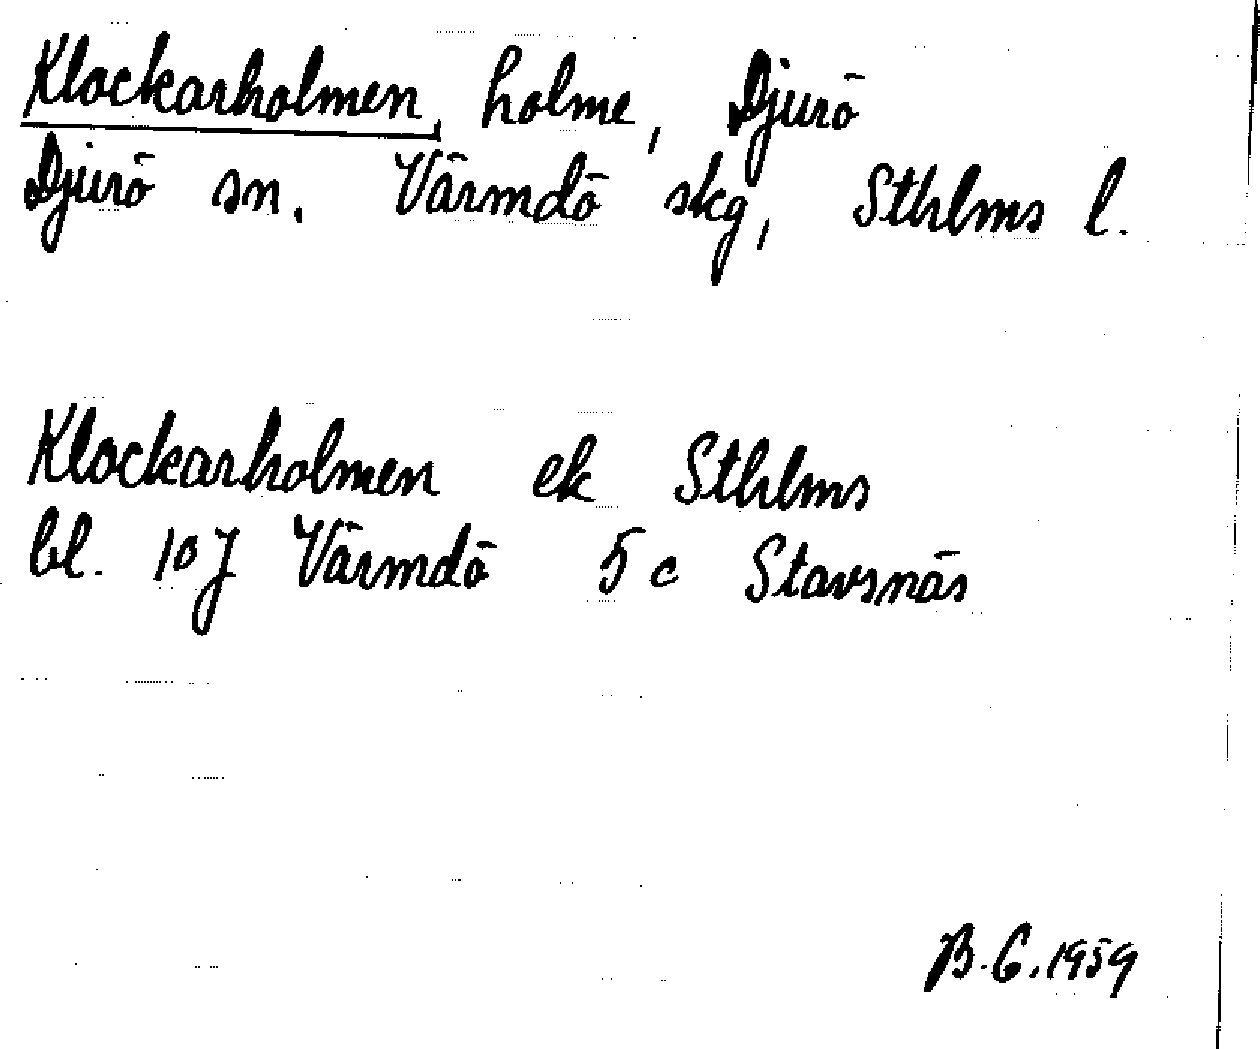 Klockarholmen, holme, Djurö
Djurö sn. Värmdö skg, Sthlms l.
Klockarholmen ek Sthlms
bl. 10J Värmdö 5c Stavsnäs
B.G. 1959